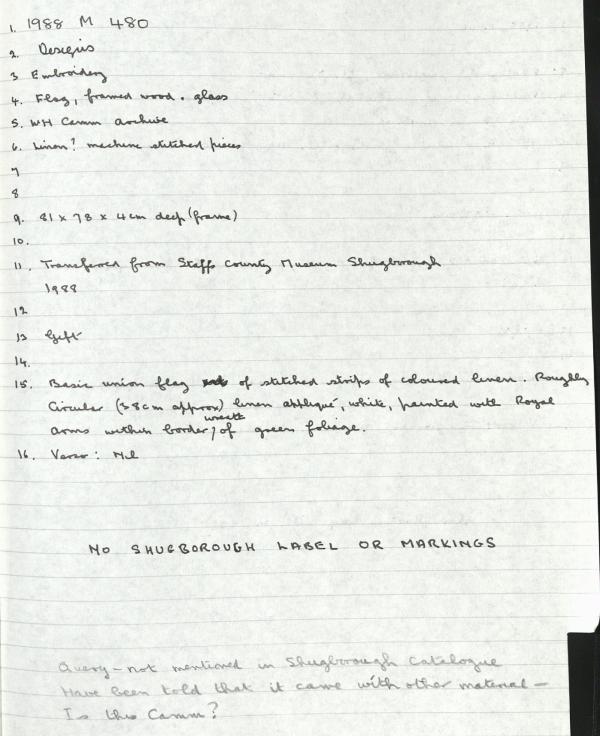 1. 1988 M 480
2. Designs
3 Embroidery
4. Flag, framed wood. glass
5. WH Camm archive
6. Linen? machine stitched pieces
7
8
9. 81 x 78 x 4cm deep (frame)
10.
11. Transferred from Staffs County Museum Shugborough
1988
12
13 Gift
14.
15. Basic union flag of stitched strips of coloured linen. Roughly
Circular (38cm approx) linen appliqué, white, painted with Royal
wreath
arms within border, of green foliage.
16. Verso: Nil
NO SHUGBOROUGH LABEL OR MARKINGS
Query - not mentioned in Shugborough Catalogue
Have been told that it came with other material -
Is this Camm?